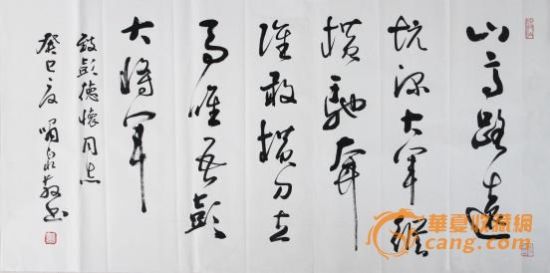 山高路遠
坑深大軍縱
横馳奔
誰敢横刀立
馬唯吾彭
大將軍
致彭德懷同志
癸巳夏
華夏收藏網
cang.com